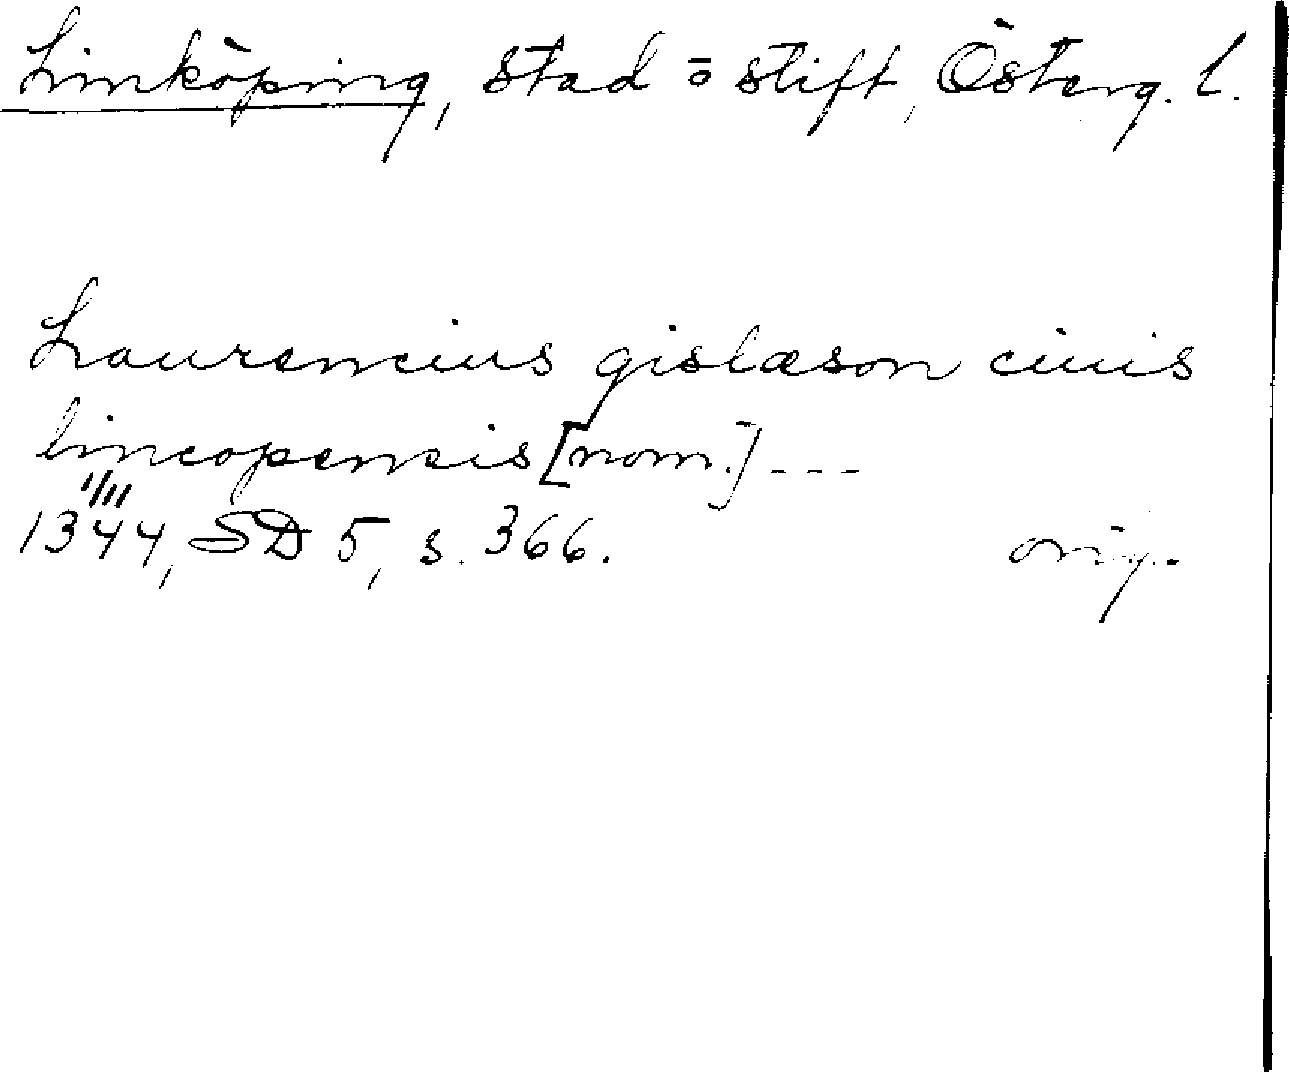 Linköping, stad o stift, Österg. l.
Laurencius gislæson ciuis
lincopensis [nom.] ---
1/11
1344, SD 5, s. 366. orig.